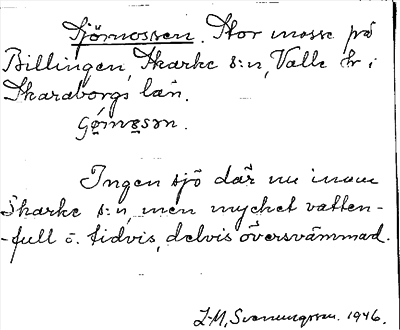 Sjömossen. Stor mosse på
Billingen, Skarke s:n, Valle hr i
Skaraborgs län.
Ingen sjö där nu inom
Skarke s:n, men mycket vatten-
-full o. tidvis, delvis översvämmad.
J-M, Svenungsson. 1946.